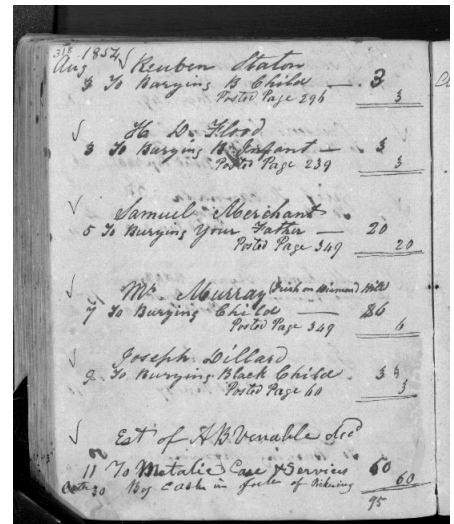 318 1854
Aug Reuben Staton
3 To Burying B Child — 3
Posted Page 296 3
H. D. Flood
3 To Burying B Infant — 3
Posted Page 239 3
Samuel Merchant
5 To Burying Your Father — 20
Posted Page 349 20
Mr. Murray (Irish on Diamond Hill)
7 To Burying Child — 6
Posted Page 349 6
Joseph Dillard
9 To Burying Black Child 3
Posted Page 60 3
Est of A B. Venable Decd
11 To Metalic Case & Services 60
Octr 20 By Cash in full of 60
95